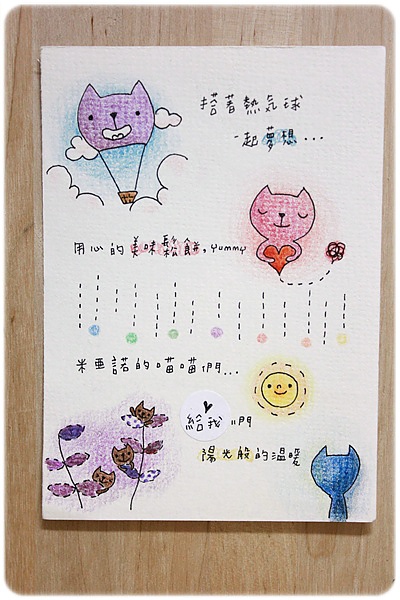 搭著熱気球
一起夢想...
用心的美味鬆餅,yummy
米亞諾的喵喵們...
給我們
陽光般的温暖